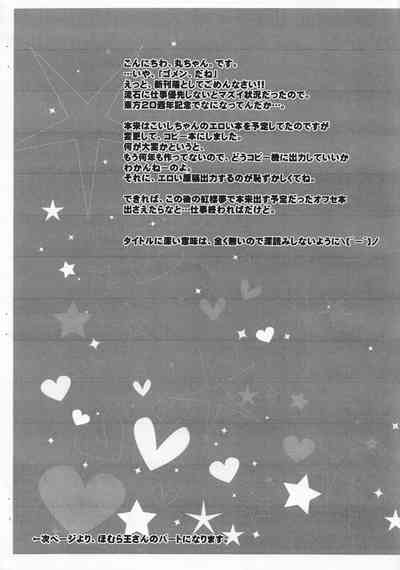 こんにちわ、丸ちゃん。です。
…いや、「ゴメン。だね」
えっと、新刊落としてごめんなさい!!
流石に仕事優先しないとマズイ状況だったので、
東方20週年記念でなになってんだか…。
本来はこいしちゃんのエロい本を予定してたのですが
変更して、コピー本にしました。
何が大変かというと、
もう何年も作ってないので、どうコピー機に出力していいか
わかんねーのよ。
それに、エロい原稿出力するのが恥ずかしくてね。
できれば、この後の紅楼夢で本来出す予定だったオフセ本
出さえたらなと…仕事終わればだけど。
タイトルに深い意味は、全く無いので深読みしないように\(￣ー￣)ノ
←次ページより、ほむら王さんのパートになります。